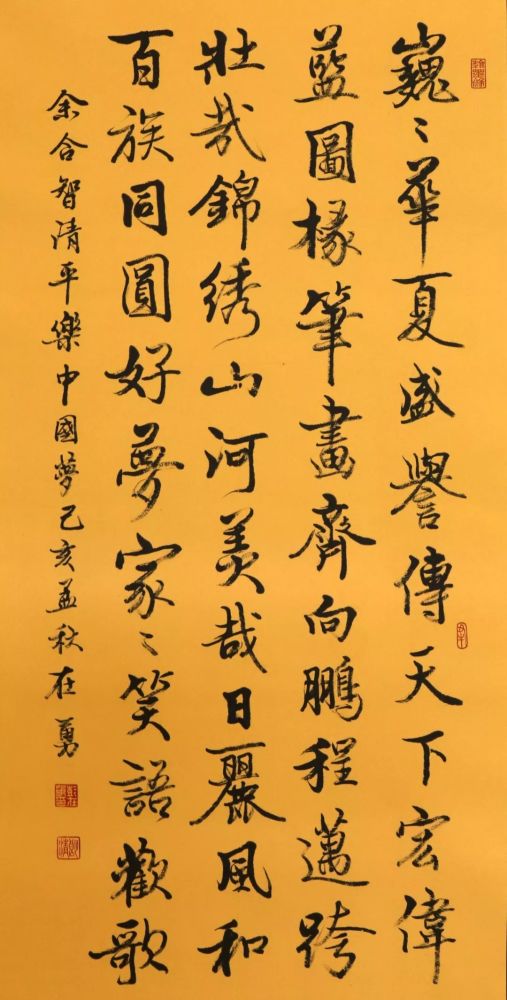 巍〻華夏盛譽傳天下宏偉
藍圖椽筆畫齊向鵬程邁跨
壯哉錦綉山河美哉日麗風和
百族同圓好夢家〻笑語歡歌
余合智清平樂中國夢己亥孟秋在勇